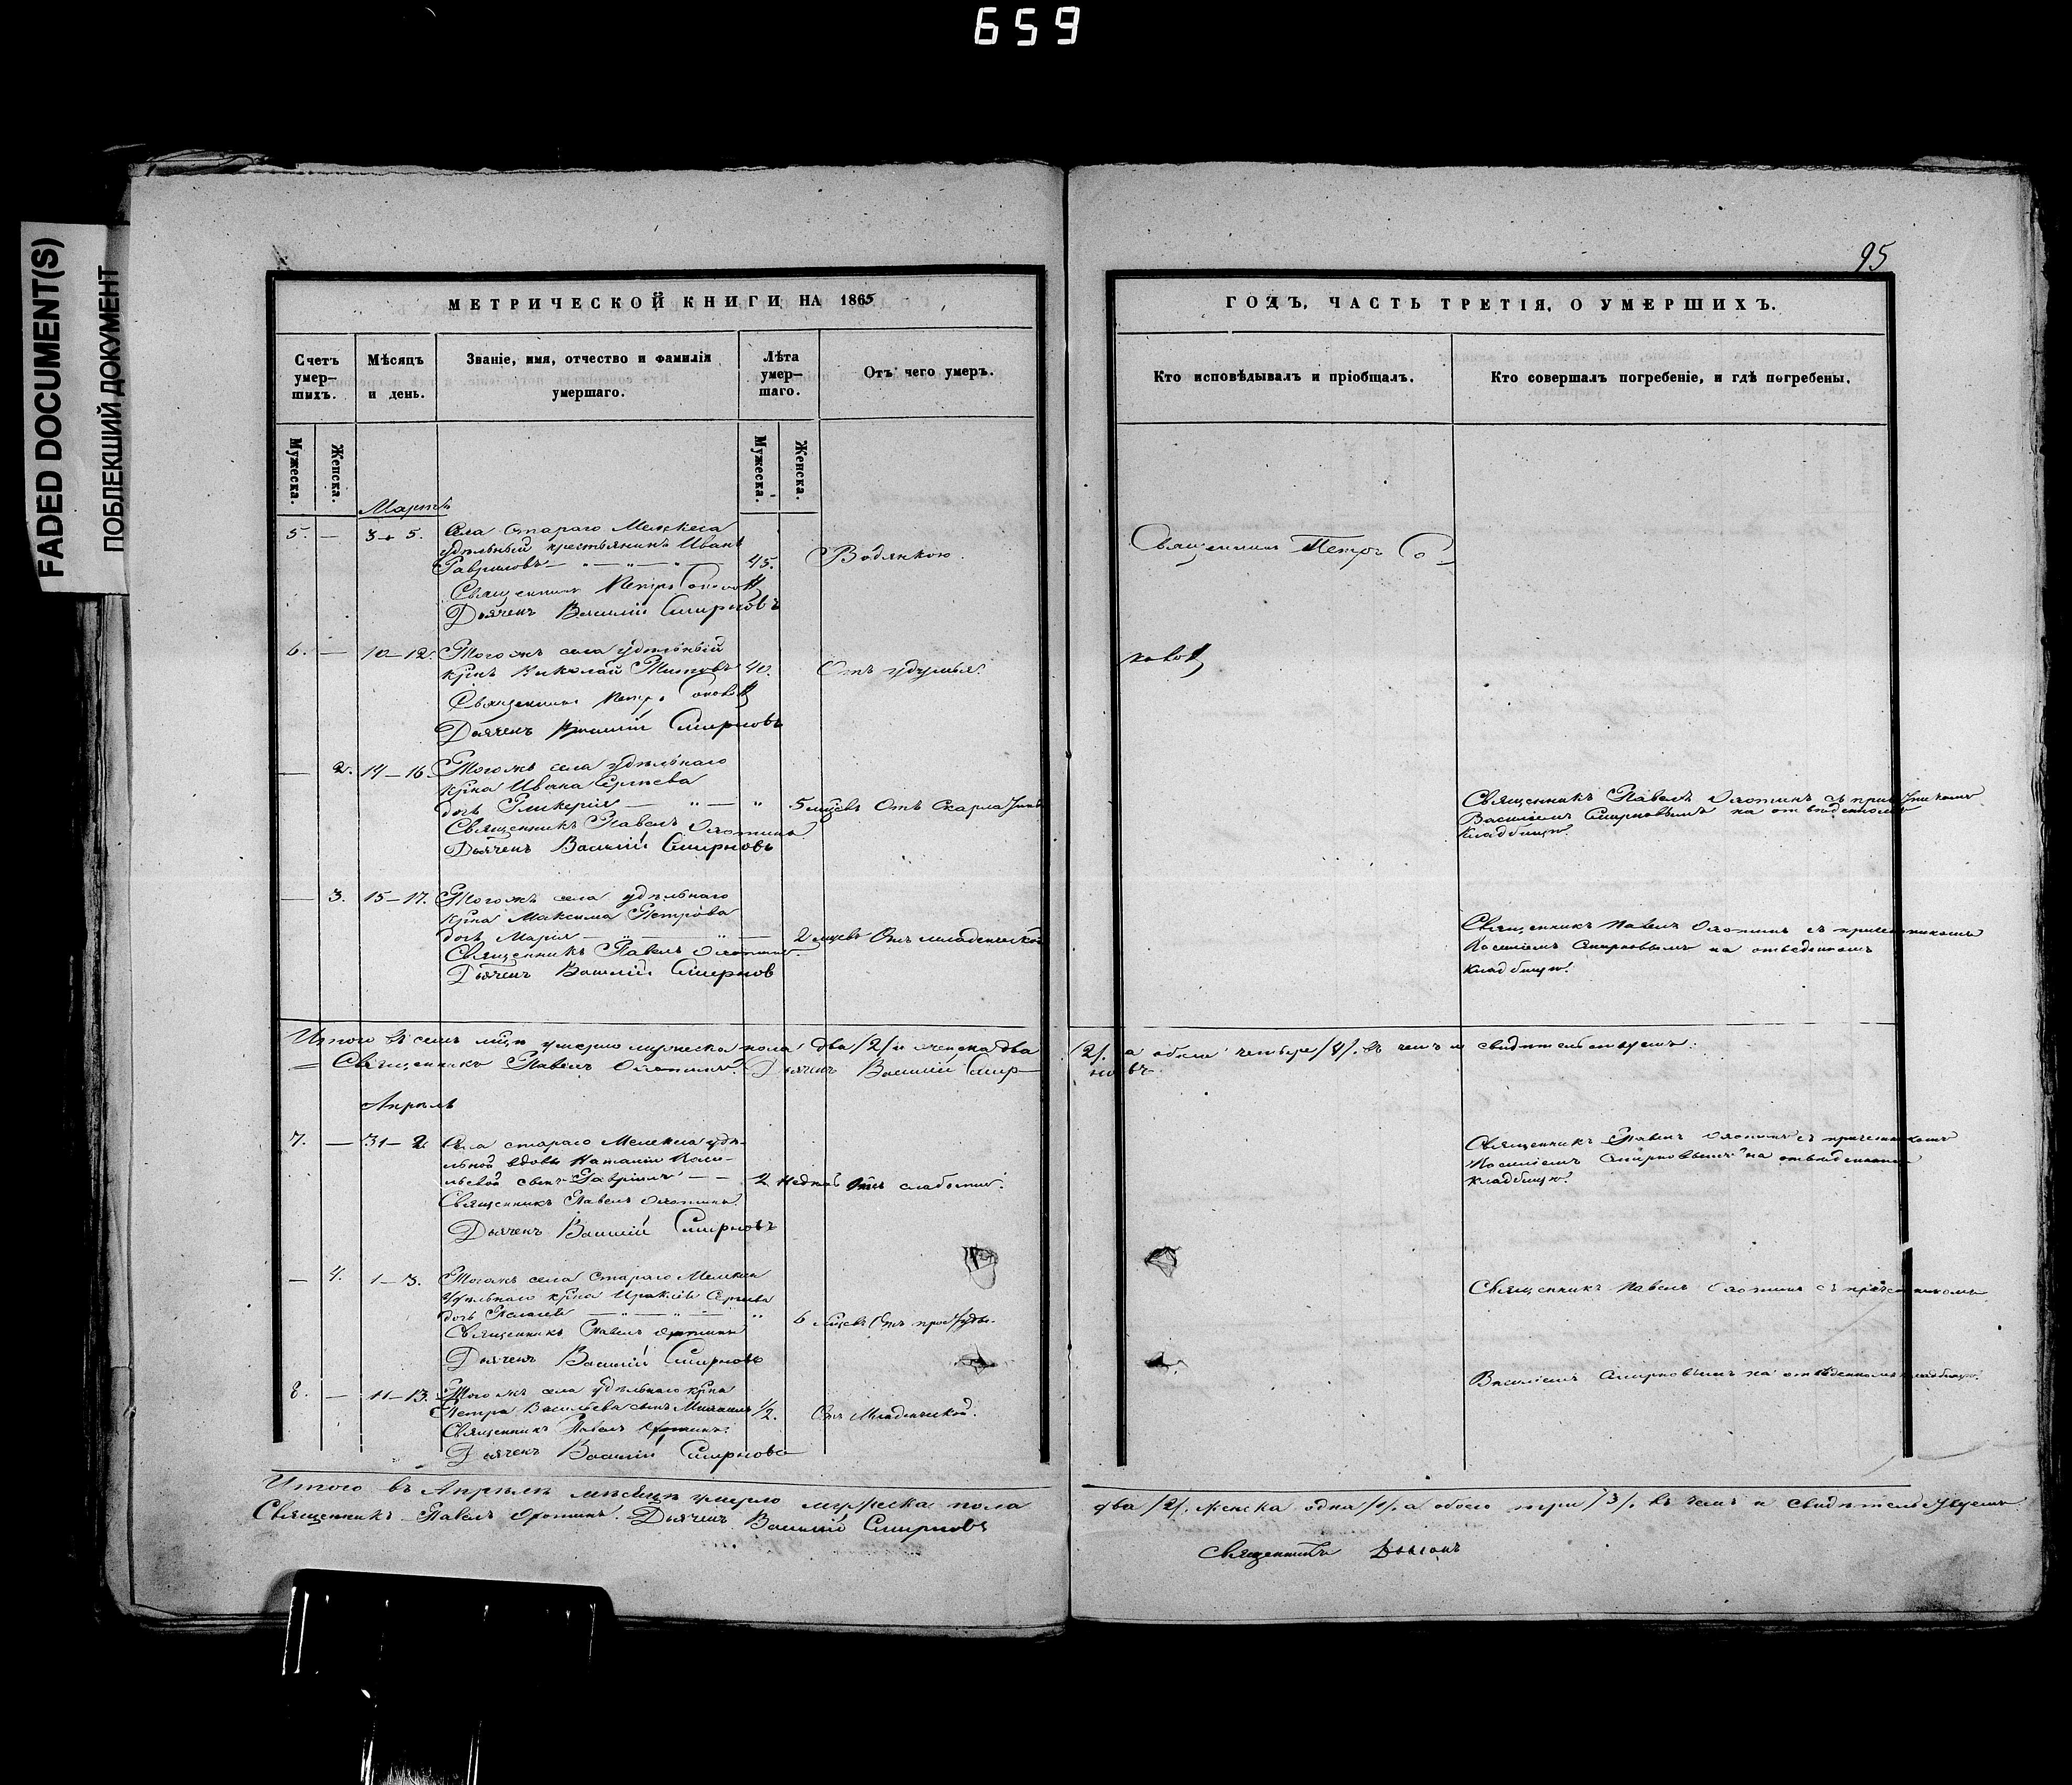 659
FADED DOCUMENT(S)
ПОБЛЕКШИЙ ДОКУМЕНТ
95
МЕТРИЧЕСКОЙ КНИГИ НА 1865
Счетъ умер-шихъ.
Мѣсяцъ и день.
Званіе, имя, отчество и фамилія умершаго.
Лѣта умер-шаго.
Отъ чего умеръ.
Мужеска.
Женска.
Мужеска.
Женска.
Мартъ
5. — 3 - 5. Села Стараго Мелекеса
удѣльный крестьянинъ Иванъ
Гавриловъ — 45. Водянкою.
Священникъ Петръ
Дьячекъ Василій Смирновъ
6. — 10 - 12. Тогожъ села удѣльный
крнъ Николай Титовъ 40. Отъ удушья.
Священникъ Петръ
Дьячекъ Василій Смирновъ
— 2. 14 - 16. Тогожъ села удѣльнаго
крна Ивана Сергѣева
дочь Гликерія — " — " 5 мцевъ Отъ Скарлатины
Священникъ Павелъ Охотинъ
Дьячекъ Василій Смирновъ
— 3. 15 - 17. Тогожъ села удѣльнаго
крна Максима Петрова
дочь Марія — 2 мцевъ Отъ младенческой
Священникъ Павелъ Охотинъ.
Дьячекъ Василій Смирнов
Итого въ семъ мцѣ умерло мужеска пола два /2/ и женска два
Священникъ Павелъ Охотинъ. Дьячекъ Василій Смир-
Апрѣль
7. — 31 - 2. Села стараго Мелекеса удѣ-
льной вдовы Наталіи Васи-
льевой сынъ Гавріилъ — — 2 недѣль Отъ слабости.
Священникъ Павелъ Охотинъ
Дьячекъ Василій Смирновъ
— 4. 1 - 3. Тогожъ села Стараго Мелекеса
Удѣльнаго крна Сергѣева
дочь Пелагея — " 6 мцевъ Отъ простуды.
Священникъ Павелъ Охотинъ
Дьячекъ Василій Смирновъ
8. — 11 - 13. Тогожъ села удѣльнаго крна
Петра Васильева сынъ Михаилъ 1/2. Отъ Младенческой.
Священникъ Павелъ Охотинъ.
Дьячекъ Василій Смирновъ
Итого въ Апрѣлѣ мѣсяцѣ умерло мужеска пола
Священникъ Павелъ Охотинъ. Дьячекъ Василій Смирновъ
ГОДЪ, ЧАСТЬ ТРЕТІЯ, О УМЕРШИХЪ.
Кто исповѣдывалъ и пріобщалъ.
Кто совершалъ погребеніе, и гдѣ погребены.
Священникъ Петръ Со-
Священникъ Павелъ Охотинъ съ причетникомъ
Василіемъ Смирновымъ на отведенномъ
кладбищѣ.
Священникъ Павелъ Охотинъ съ причетникомъ
Василіемъ Смирновымъ на отведенномъ
кладбищѣ.
/2/. а обоего четыре /4/. въ чемъ и свидѣтельствуемъ.
новъ
Священникъ Павелъ Охотинъ съ причетникомъ
Василіемъ Смирновымъ на отведенномъ
кладбищѣ.
Священникъ Павелъ Охотинъ съ причетникомъ
Василіемъ Смирновымъ на отведенномъ кладбищѣ.
два /2/. женска одна /1/. а обоего три /3/. въ чемъ и свидѣтельствуемъ
Священникъ